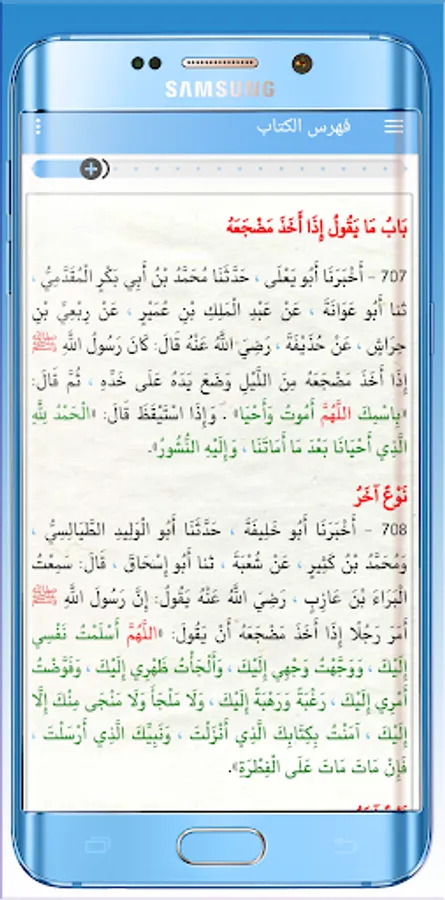 SAMSUNG
فهرس الكتاب
بَابُ مَا يَقُولُ إِذَا أَخَذَ مَضْجَعَهُ
707 - أَخْبَرَنَا أَبُو يَعْلَى ، حَدَّثَنَا مُحَمَّدُ بْنُ أَبِي بَكْرٍ الْمُقَدَّمِيُّ ،
ثنا أَبُو عَوَانَةَ ، عَنْ عَبْدِ الْمَلِكِ بْنِ عُمَيْرٍ ، عَنْ رِبْعِيِّ بْنِ
حِرَاشٍ ، عَنْ حُذَيْفَةَ ، رَضِيَ اللَّهُ عَنْهُ قَالَ: كَانَ رَسُولُ اللَّهِ ﷺ
إِذَا أَخَذَ مَضْجَعَهُ مِنَ اللَّيْلِ وَضَعَ يَدَهُ عَلَى خَدِّهِ ، ثُمَّ قَالَ:
«بِاسْمِكَ اللَّهُمَّ أَمُوتُ وَأَحْيَا» . وَإِذَا اسْتَيْقَظَ قَالَ: «الْحَمْدُ لِلَّهِ
الَّذِي أَحْيَانَا بَعْدَ مَا أَمَاتَنَا ، وَإِلَيْهِ النُّشُورُ».
نَوْعٌ آخَرُ
708 - أَخْبَرَنَا أَبُو خَلِيفَةَ ، حَدَّثَنَا أَبُو الْوَلِيدِ الطَّيَالِسِيُّ ،
وَمُحَمَّدُ بْنُ كَثِيرٍ ، عَنْ شُعْبَةَ ، ثنا أَبُو إِسْحَاقَ ، قَالَ: سَمِعْتُ
الْبَرَاءَ بْنَ عَازِبٍ ، رَضِيَ اللَّهُ عَنْهُ يَقُولُ: إِنَّ رَسُولَ اللَّهِ ﷺ
أَمَرَ رَجُلًا إِذَا أَخَذَ مَضْجَعَهُ أَنْ يَقُولَ: «اللَّهُمَّ أَسْلَمْتُ نَفْسِي
إِلَيْكَ ، وَوَجَّهْتُ وَجْهِي إِلَيْكَ ، وَأَلْجَأْتُ ظَهْرِي إِلَيْكَ ، وَفَوَّضْتُ
أَمْرِي إِلَيْكَ ، رَغْبَةً وَرَهْبَةً إِلَيْكَ ، وَلَا مَلْجَأَ وَلَا مَنْجَى مِنْكَ إِلَّا
إِلَيْكَ ، آمَنْتُ بِكِتَابِكَ الَّذِي أَنْزَلْتَ ، وَنَبِيِّكَ الَّذِي أَرْسَلْتَ ،
فَإِنْ مَاتَ مَاتَ عَلَى الْفِطْرَةِ».